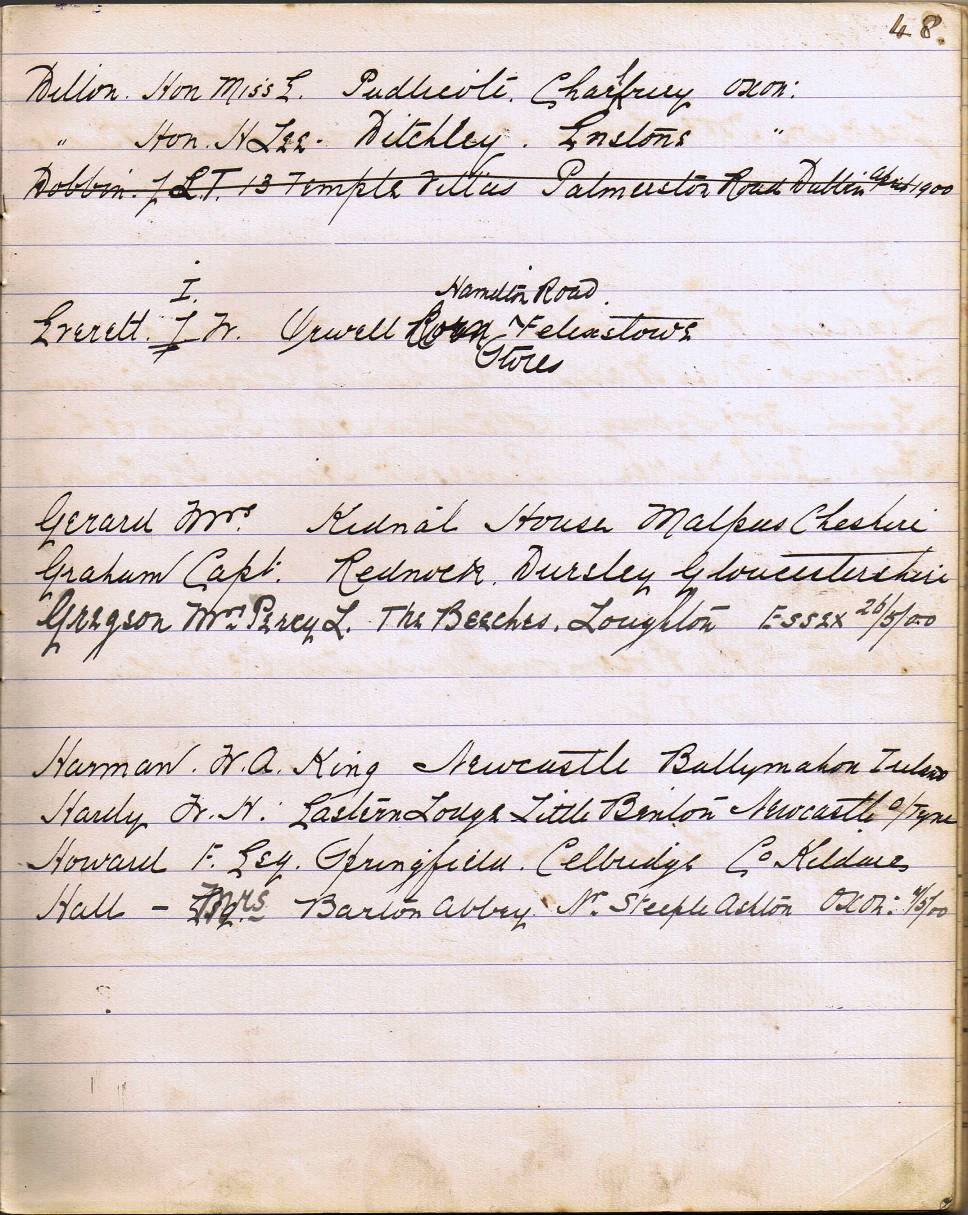 48.
Dillon. Hon Miss E. Pudlicote. Charlbury Oxon:
" Hon. H Lee. Ditchley. Enstone "
Dobbin. J L.T. 13 Temple Villas Palmerston Road Dublin April 1900
I. Hamilton Road.
Everett. J W. Orwell Felixstowe
Stores
Gerard Mrs Kidnal House Malpas Cheshire
Graham Capt. Rednock. Dursley Gloucestershire
Gregson Mrs Percy L. The Beeches. Loughton Essex 26/5/00
Harman. W.A. King Newcastle Ballymahon Ireland
Hardy W. H. Eastern Lodge Little Benton Newcastle o/Tyne
Howard F. Esq. Springfield. Celbridge Co Kildare
Hall – Mrs Barton Abbey. Nr. Steeple Ashton Oxon: